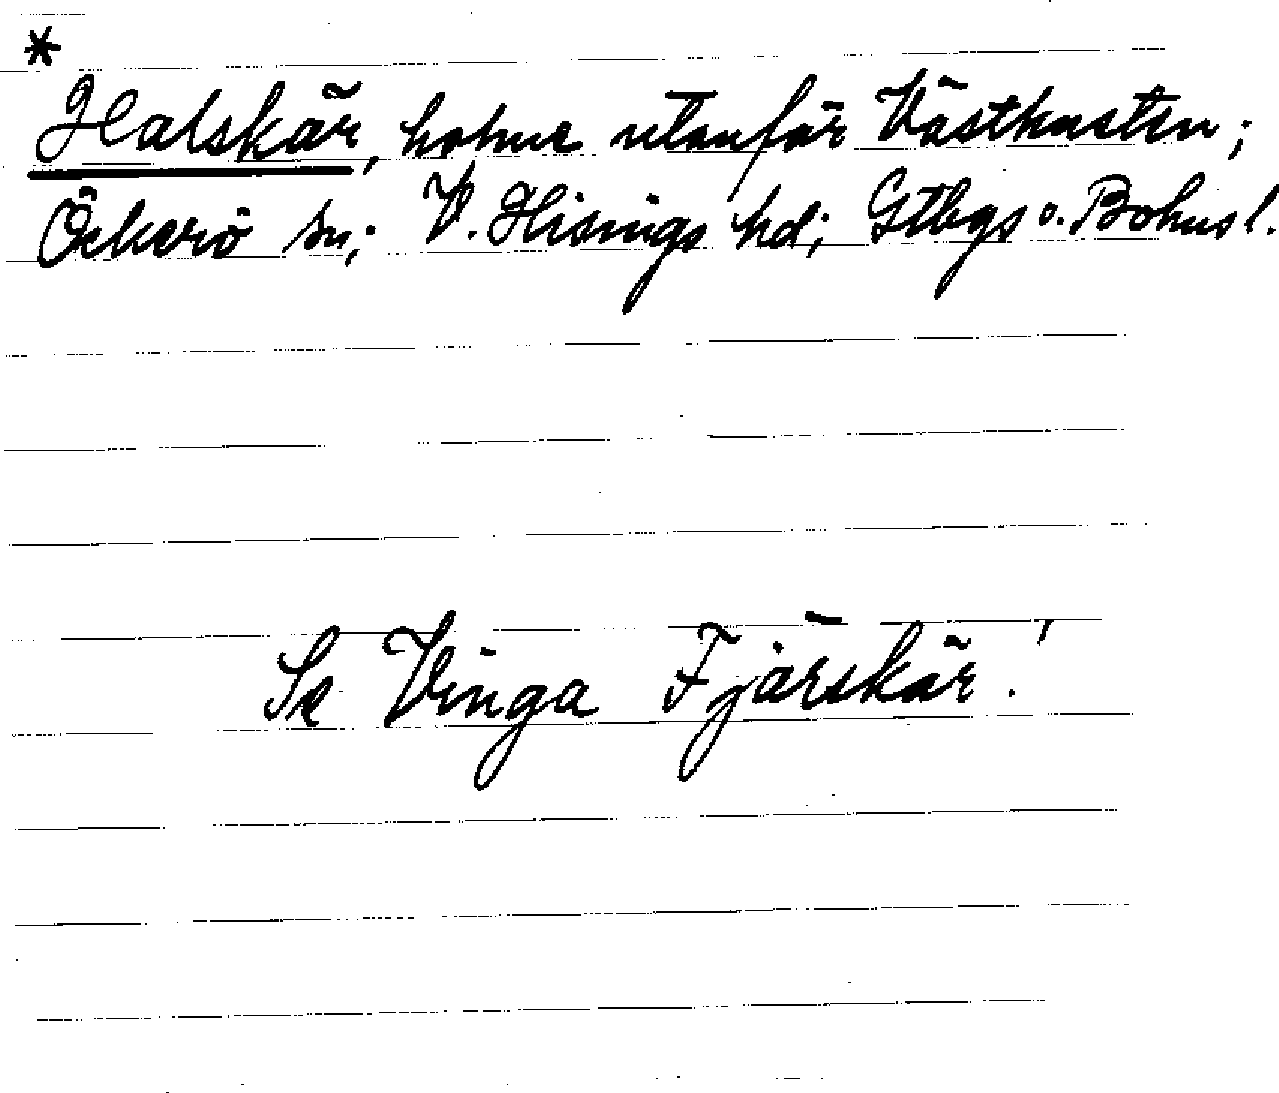 *
Halskär, holme utanför Västkusten;
Öckerö sn; V. Hisings hd; Gtbgs o. Bohus l.
Se Vinga Fjärskär!